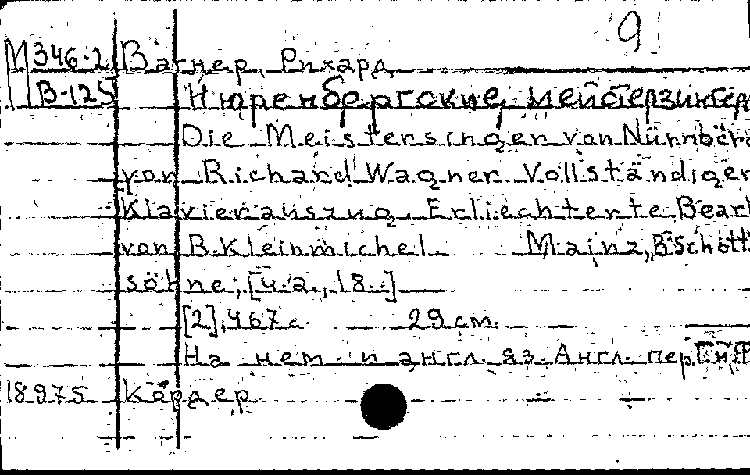 9
М 346.2 Вагнер, Рихард
В-125 Нюренбергские мейстерзингер
Die Meistersinger von Nürnberg
von Richard Wagner. Vollständiger
Klavierauszug. Erliechterte Bearb
von B. Kleinmichel. Mainz, B. Schott
söhne, [4.а., 18..]
[2], 467 с. 29 см.
На нем. и англ. яз. Англ. пер.
18975 Кордер